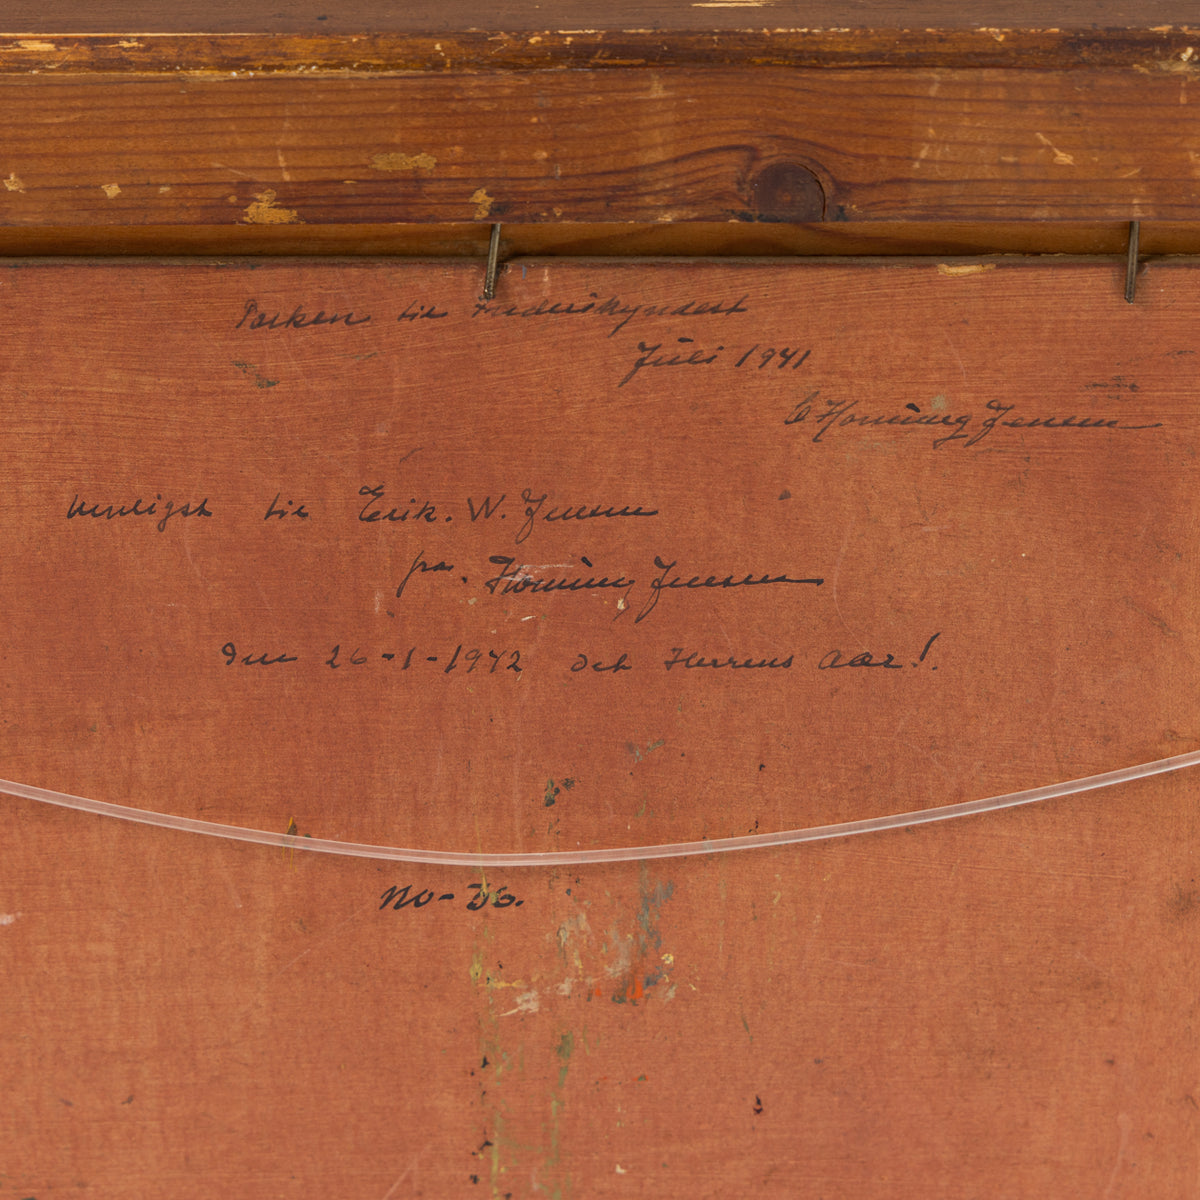 Parken til Frederikgndest
Juli 1941
C Horning Jensen
Venligst til Erik. W. Jensen
fra. Horning Jensen
Den 26-1-1942 det Herrens Aar!.
No-36.